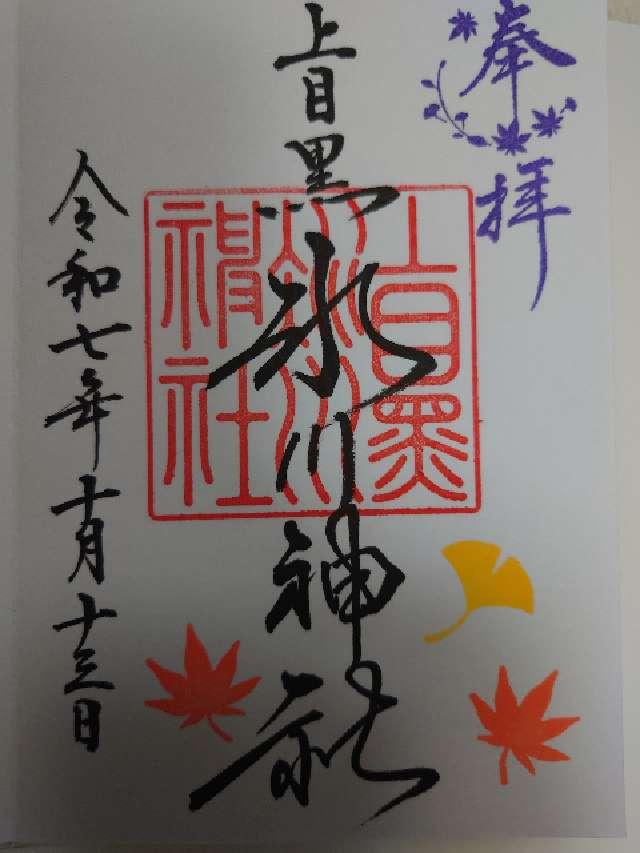 奉拝
上目黒氷川神社
上目黒氷川神社
令和七年十月十三日